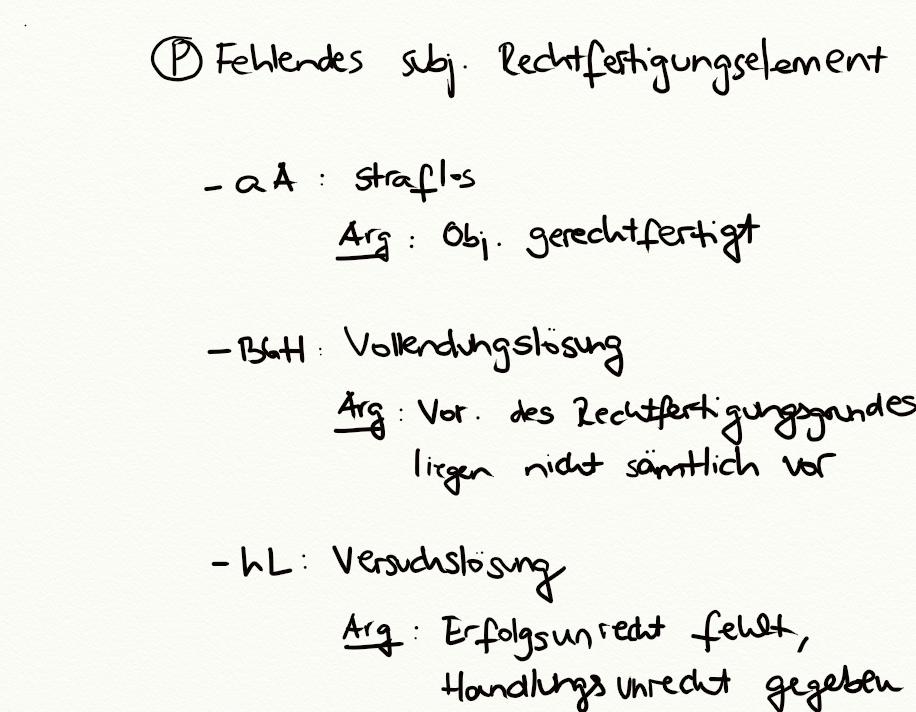 Ⓟ Fehlendes subj. Rechtfertigungselement
- aA : straflos
Arg : Obj. gerechtfertigt
- BGH : Vollendungslösung
Arg : Vor. des Rechtfertigungsgrundes
liegen nicht sämtlich vor
- hL : Versuchslösung
Arg : Erfolgsunrecht fehlt,
Handlungsunrecht gegeben